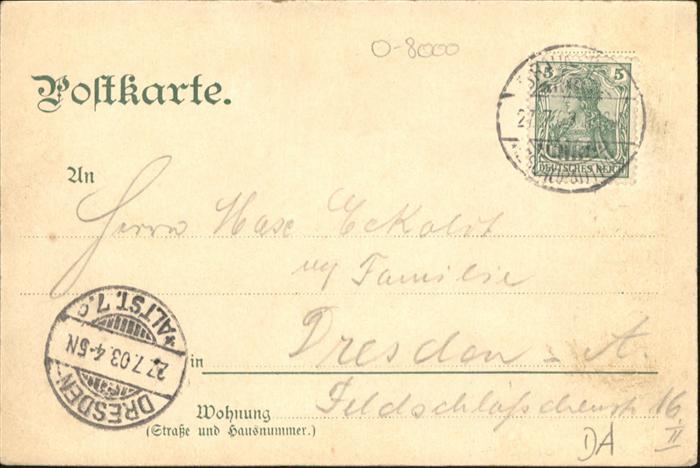 O-8000
Postkarte.
5 5
27.7.
DEUTSCHES REICH
An
Herrn Max Eckoldt
u Familie
in Dresden-A.
Wohnung
(Straße und Hausnummer.)
Feldschlößchenstr 16
II
DRESDEN-
*ALTST. 7.
27.7.03.4-5N
DA